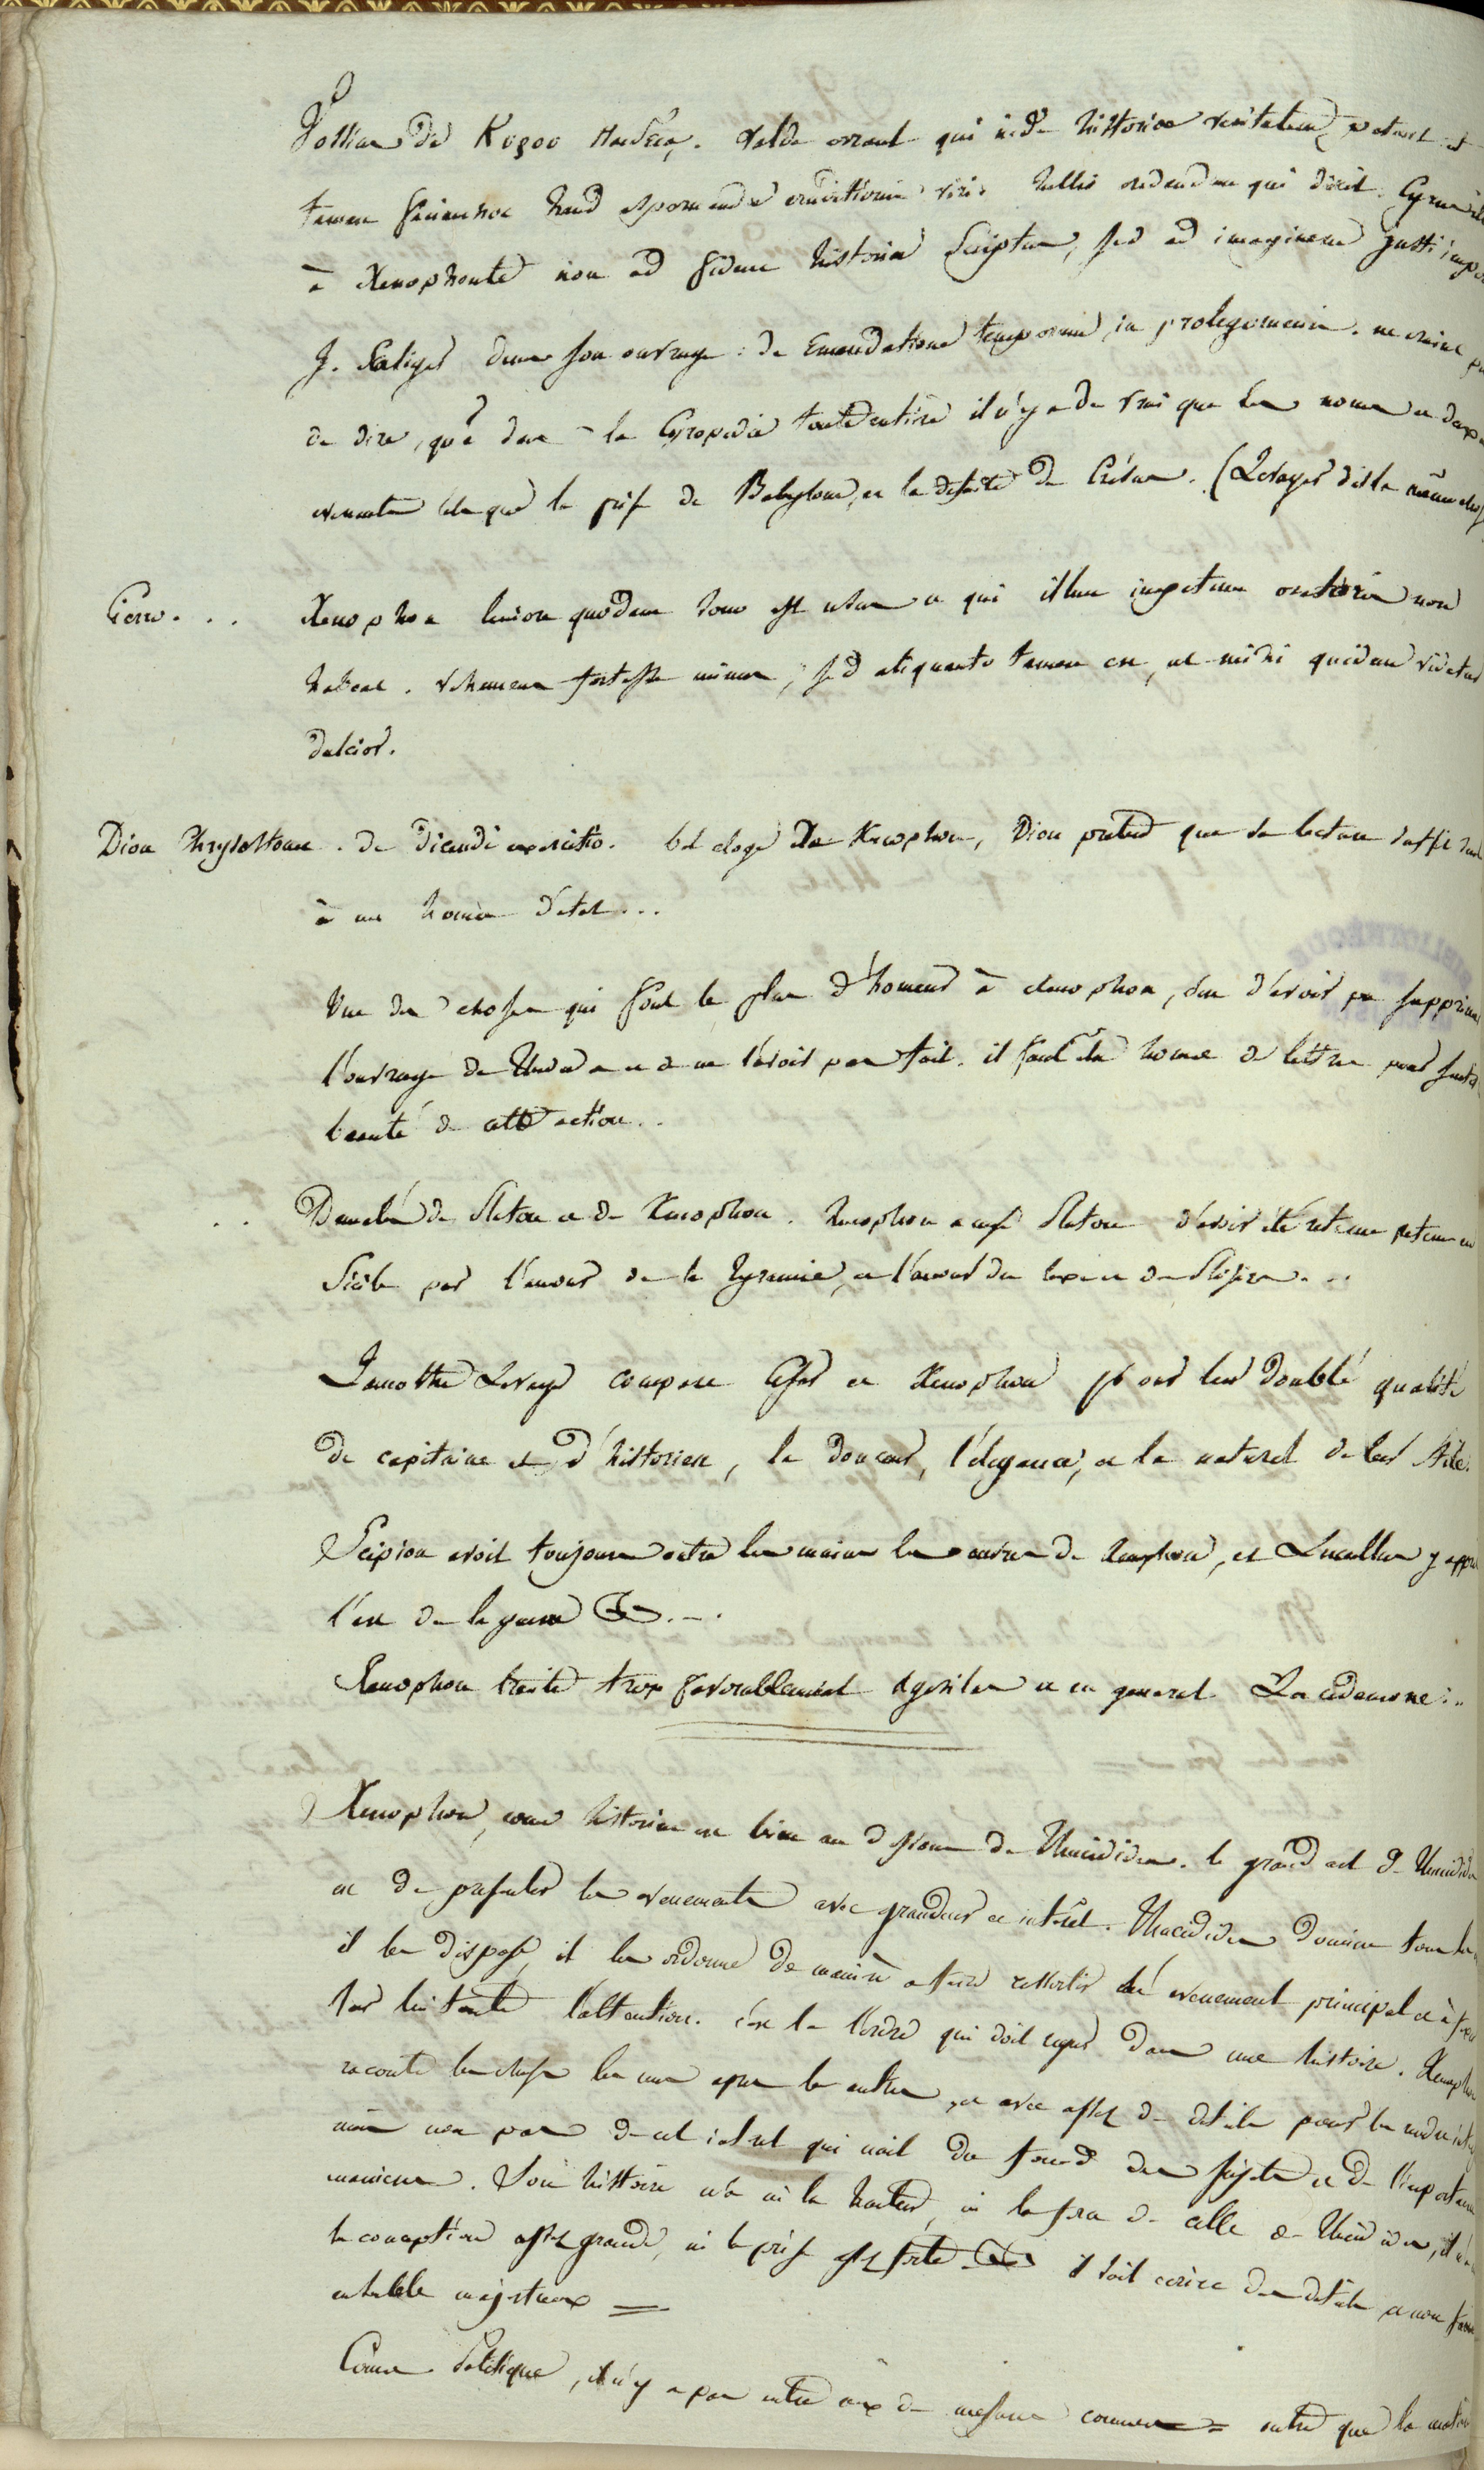 Vossius de Κυρου παιδεια. Valde errant qui inde historiae veritatem petunt et
tamen faciunt hoc haud spernendae eruditionis viri. Tullio credendum qui dixit. Cyrum ille
a Xenophonte non ad fidem historiae scriptum, sed ad imaginem justi imperii
J. Scaliger dans son ouvrage : de Emendatione temporum, in prolegomenis. ne craint pas
de dire, que dans la Cyropedie toute entiere il n'y a de vrai que les noms et deux
evenements tels que la prise de Babylone, et la defaite de Crésus. (Levayer dit la même chose
Cicero... Xenophon leniore quodam sono est usus et qui illum impetum oratoris non
habeat. vehemens fortasse minus, sed aliquanto tamen est, ut mihi quidem videtur
dulcior.
Dion Chrysostome. de dicendi exercitio. bel eloge de Xenophon, Dion pretend que sa lecture suffit
à un homme d'état...
Une des choses qui font le plus d'honneur à Xenophon, c'est d'avoir pu supprimer
l'ouvrage de Thucydide et de ne l'avoir pas fait. il faut être homme de lettres pour sentir
beauté de cette action..
.. Demelés de Platon et de Xenophon. Xenophon accuse Platon d'avoir été retenu en
Sicile par l'amour de la tyrannie, et l'amour du luxe et des plaisirs...
Lamotthe Levayer compare César et Xenophon pour leur double qualité
de capitaine et d'historien, la douceur, l'élégance, et le naturel de leur stile.
Scipion avoit toujours entre les mains les œuvres de Xenophon, et Lucullus y apprit
l'art de la guerre &...
Xenophon traite trop favorablement Agesilas et en general Lacedemone...
Xenophon, comme historien est bien au dessous de Thucidides. le grand art de Thucidide
est de presenter les evenements avec grandeur et intérêt. Thucidides domine tous les
il les dispose, il les ordonne de maniere a faire ressortir l'évenement principal et à fixer
sur lui toute l'attention. c'est là l'ordre qui doit regner dans une histoire. Xenophon
raconte les choses les unes apres les autres, et avec assez de details pour les rendre
mais non pas de cet interet qui nait du fond des sujets et de l'importance
. Son histoire n'a ni la hauteur, ni la de celle de Thucidides, il n'a
la conception assez grande, ni l'esprit assez forte &c il sait ecrire des details et non faire
un tableau majestueux =
Comme Politique, il n'y a pas entre eux de mesure commune = outre que la